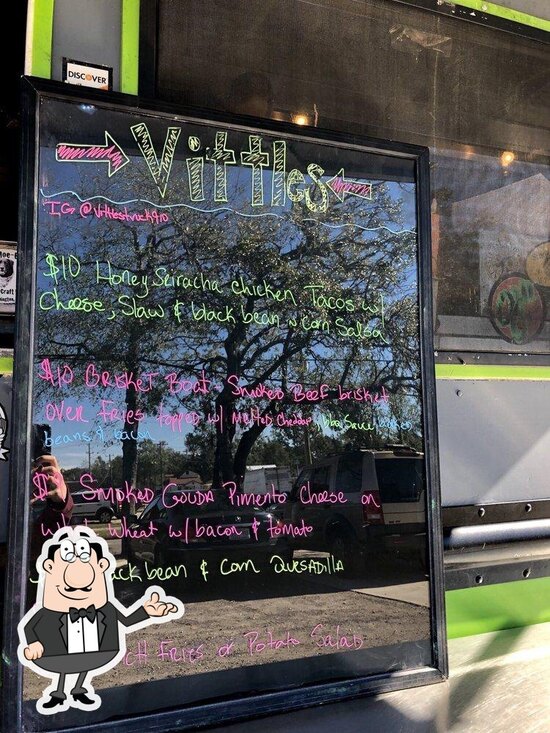 DISCOVER
Vittles
IG @vittlestruck910
$10 Honey Sriracha chicken Tacos w/
Cheese, Slaw & black bean n corn Salsa
$10 Brisket Boat - Smoked Beef brisket
over Fries topped w/ melted cheddar, bbq Sauce,
beans & bacon
Smoked Gouda Pimento Cheese on
wheat w/ bacon & tomato
black bean & corn Quesadilla
Fries or Potato Salad